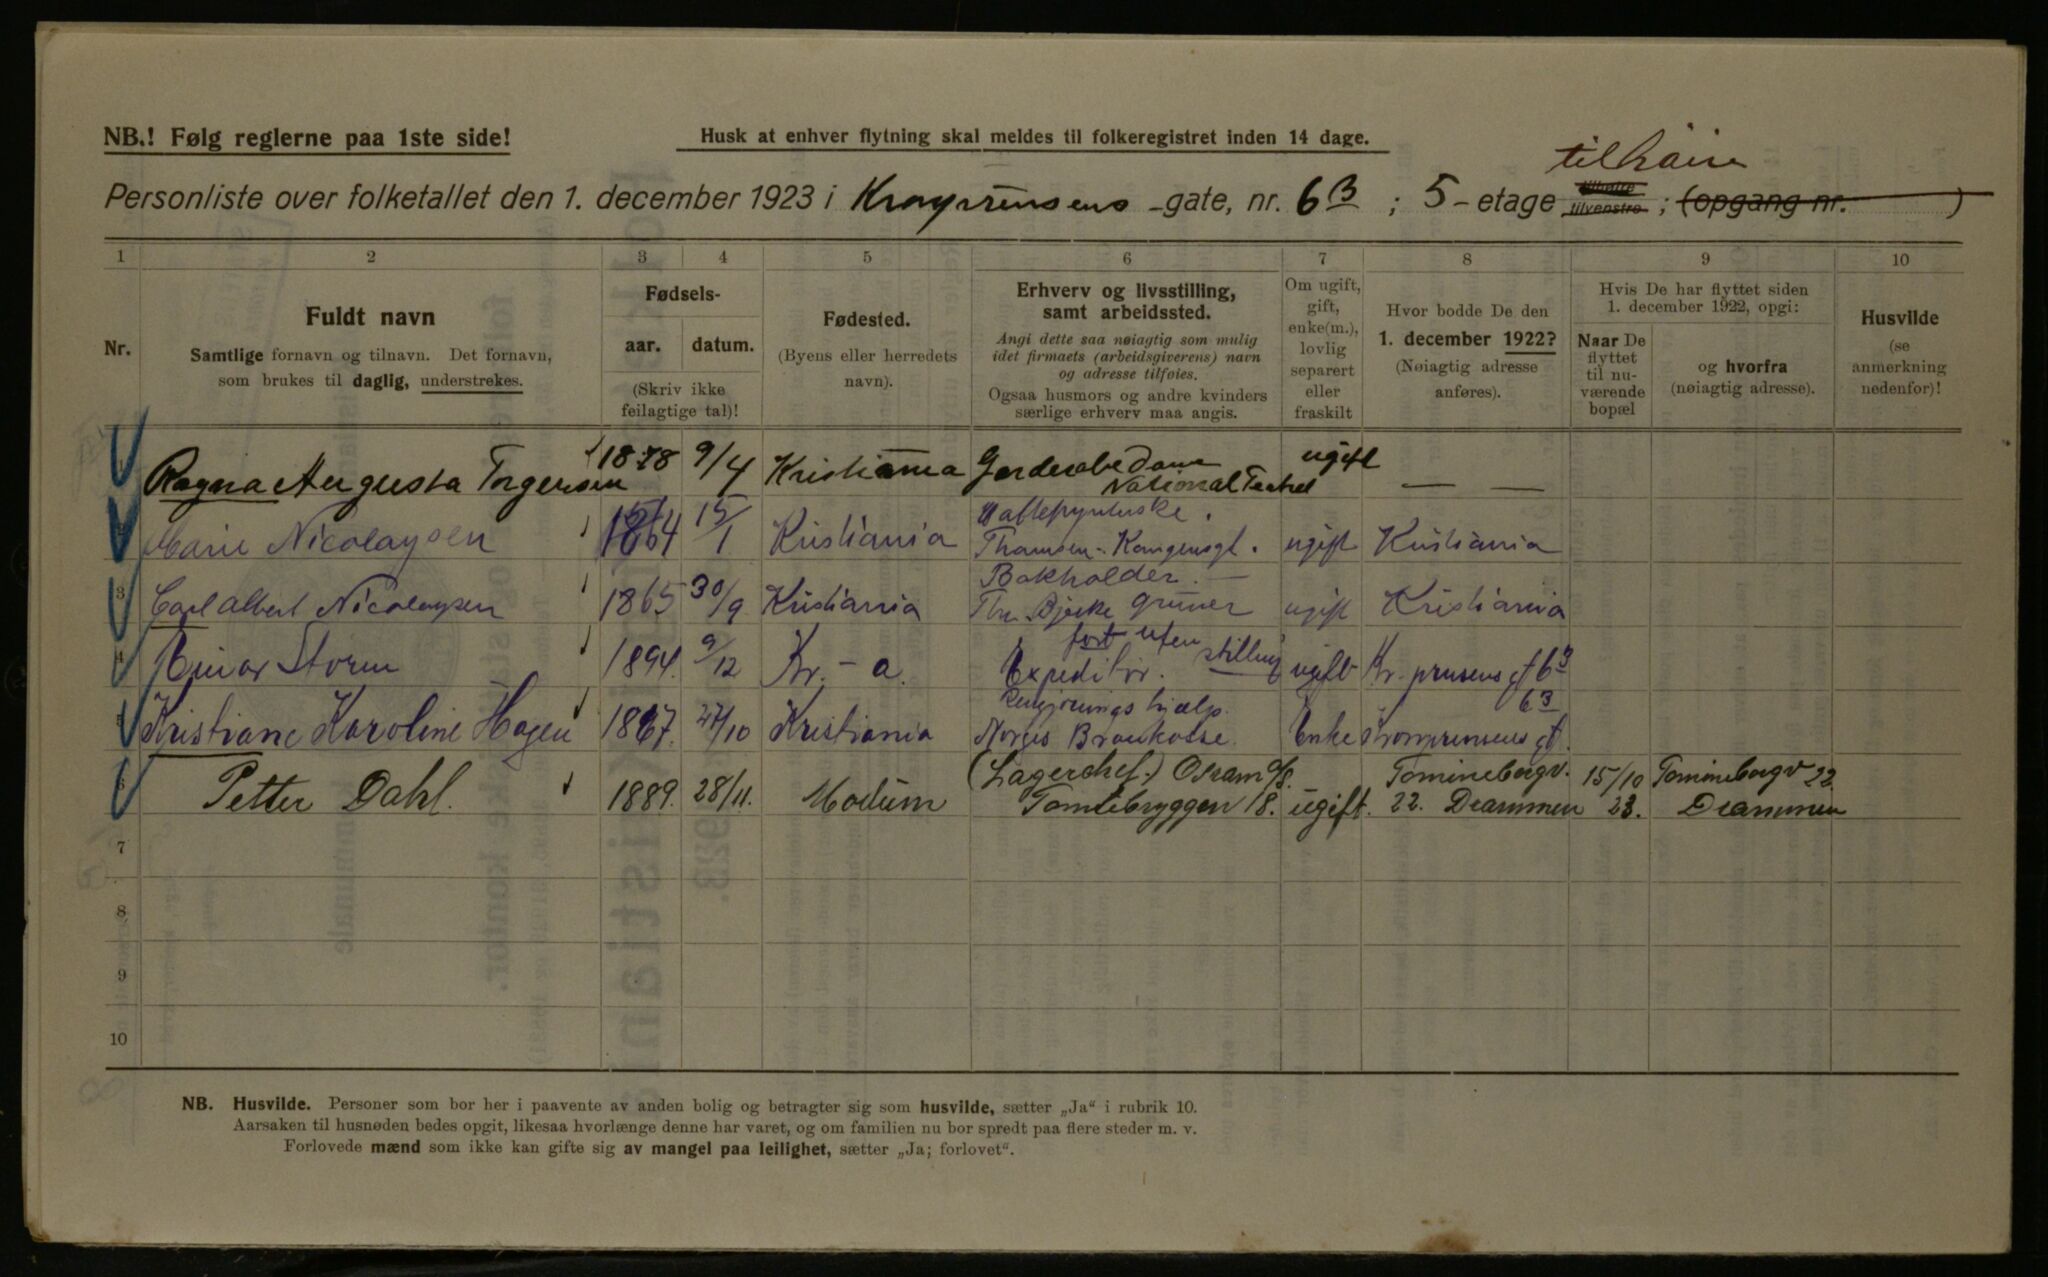 NB.! Følg reglerne paa 1ste side!
Husk at enhver flytning skal meldes til folkeregistret inden 14 dage.
til høire
Personliste over folketallet den 1. december 1923 i Kronprinsens -gate, nr. 6B ; 5 - etage tilhøire tilvenstre ; (opgang nr. )
1 2 3 4 5 6 7 8 9 10
Nr.
Fuldt navn
Samtlige fornavn og tilnavn. Det fornavn,
som brukes til daglig, understrekes.
Fødsels-
aar. datum.
(Skriv ikke
feilagtige tal)!
Fødested.
(Byens eller herredets
navn).
Erhverv og livsstilling,
samt arbeidssted.
Angi dette saa nøiagtig som mulig
idet firmaets (arbeidsgiverens) navn
og adresse tilføies.
Ogsaa husmors og andre kvinders
særlige erhverv maa angis.
Om ugift,
gift,
enke(m.),
lovlig
separert
eller
fraskilt
Hvor bodde De den
1. december 1922?
(Nøiagtig adresse
anføres).
Hvis De har flyttet siden
1. december 1922, opgi:
Naar De
flyttet
til nu-
værende
bopæl
og hvorfra
(nøiagtig adresse).
Husvilde
(se
anmerkning
nedenfor)!
1 Ragna Augusta Torgersen 1878 9/4 Kristiania Garderobe Dame National Teatret ugift — —
2 Marie Nicolaysen 1864 15/1 Kristiania Thamsen - Kongensgt. ugift Kristiania
3 Carl Albert Nicolaysen 1865 30/9 Kristiania Bokholder. — Thv. Bjerke Grüner ugift Kristiania
4 Einar Storm 1894. 9/12 Kr. - a. Expeditør. fort uten stilling ugift Kr. prinsens gt 6B
5 Kristiane Karoline Hagen 1867. 27/10 Kristiania Rengjøringshjælp. Norges Brankasse. Enke Kronprinsens gt. 6B
6 Petter Dahl. 1889. 28/11. Modum (Lagerchef.) Osram A/S. Tomtebryggen 18. ugift. Tomineborgv. 22. Drammen 15/10 23. Tomineborgv 22. Drammen
7
8
9
10
NB. Husvilde. Personer som bor her i paavente av anden bolig og betragter sig som husvilde, sætter „Ja“ i rubrik 10.
Aarsaken til husnøden bedes opgit, likesaa hvorlænge denne har varet, og om familien nu bor spredt paa flere steder m. v.
Forlovede mænd som ikke kan gifte sig av mangel paa leilighet, sætter „Ja; forlovet“.